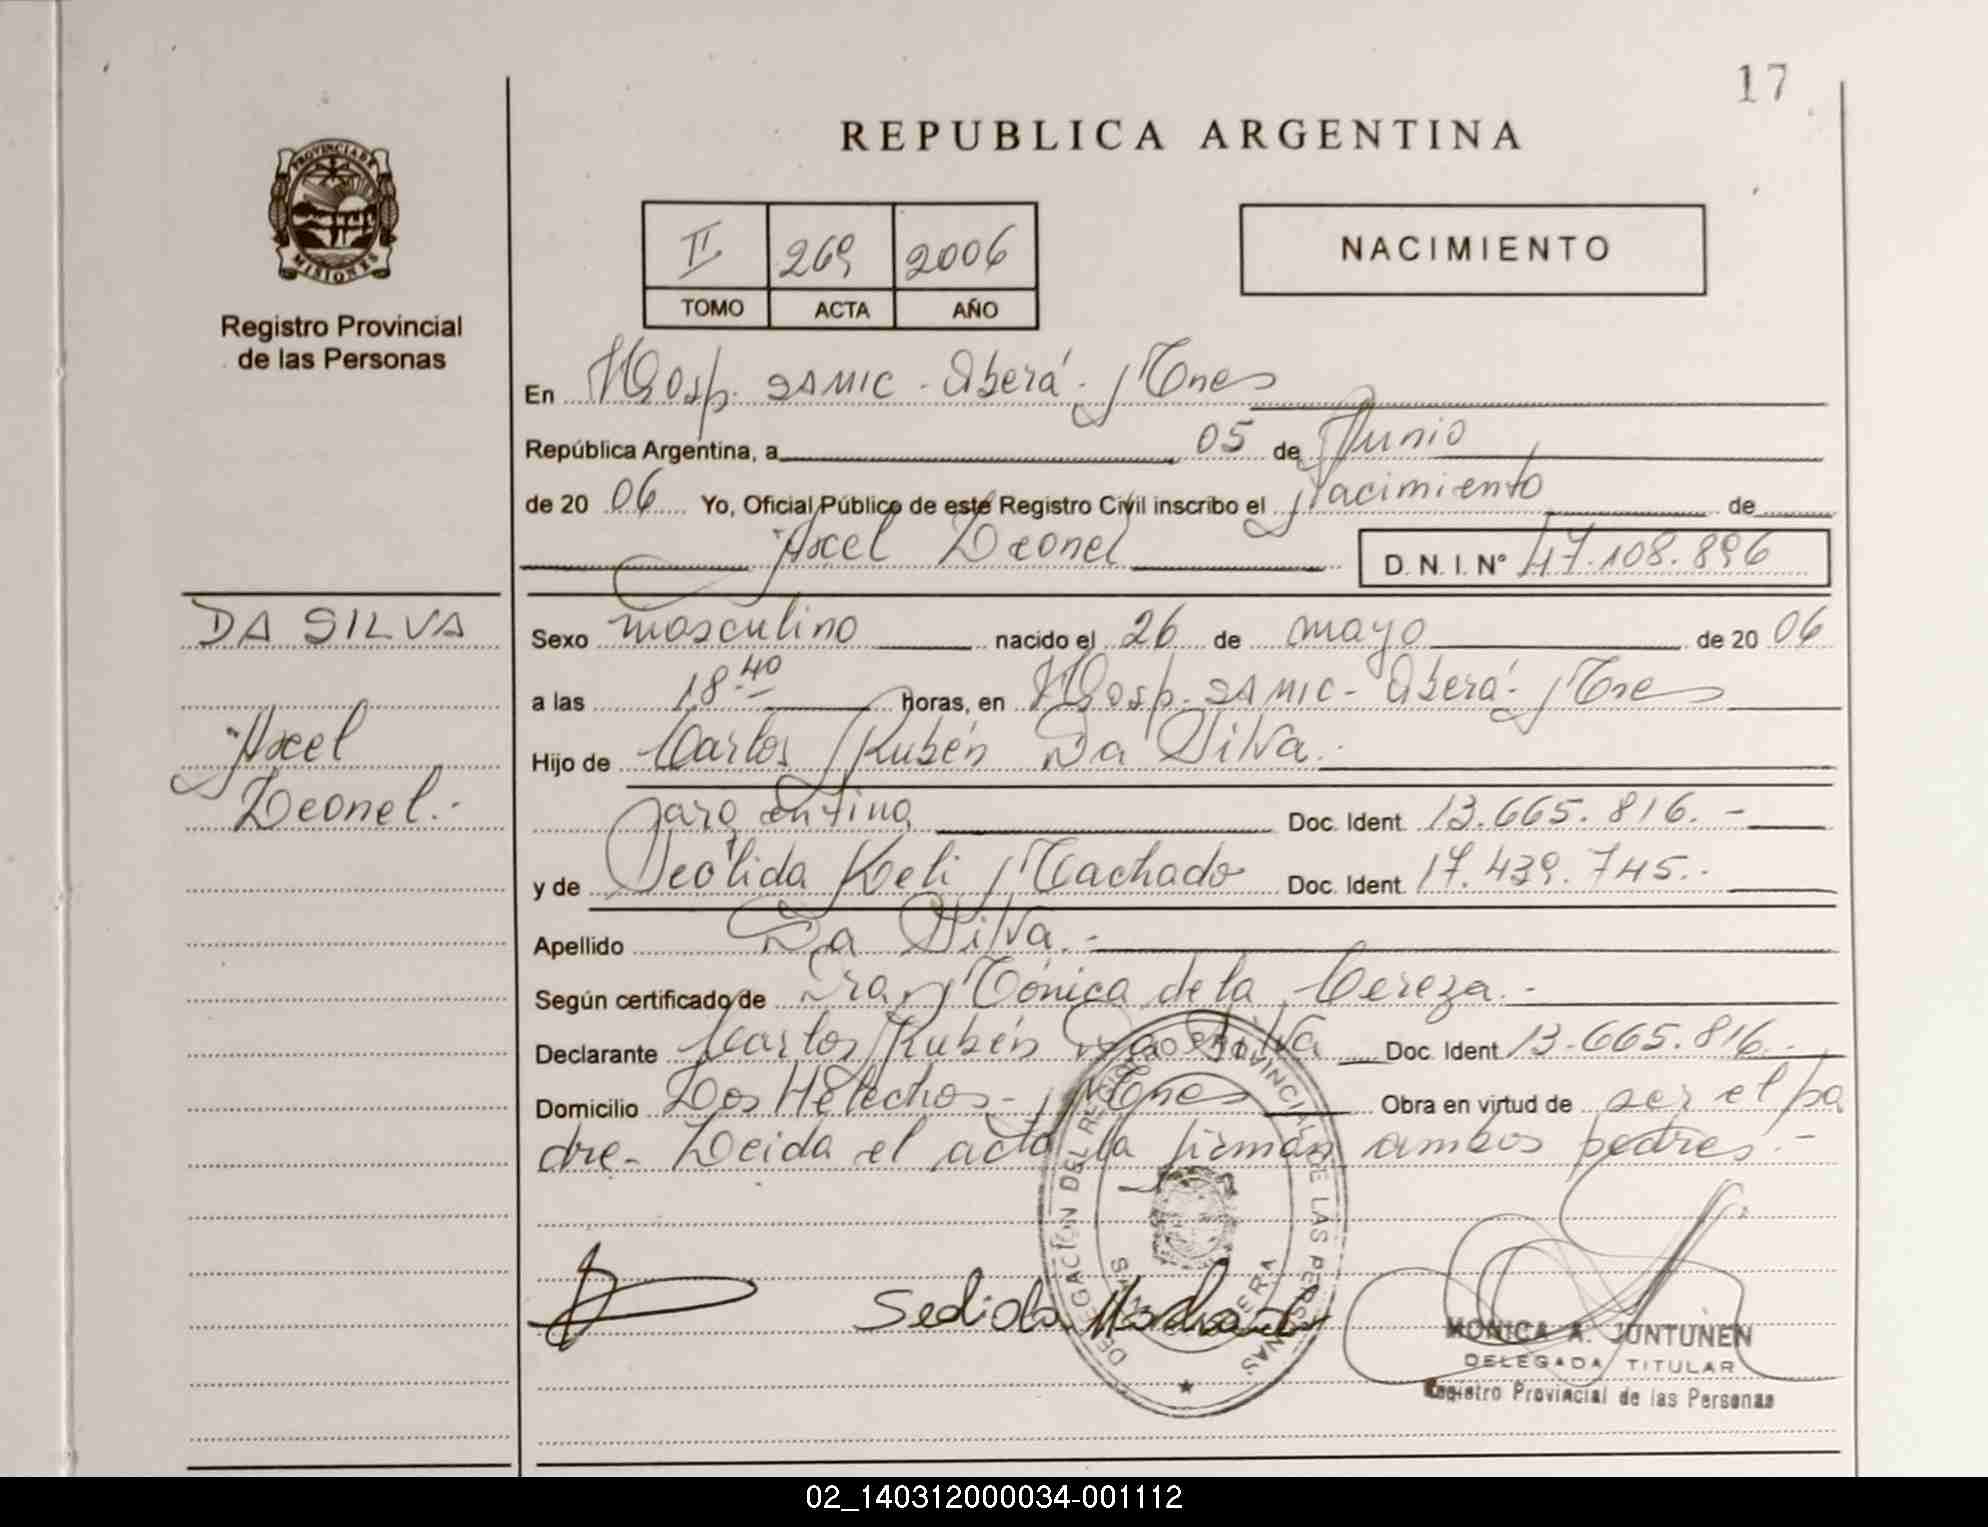 17
REPUBLICA ARGENTINA
PROVINCIA DE
MISIONES
Registro Provincial
de las Personas
II 269 2006
TOMO ACTA AÑO
NACIMIENTO
En Hosp. SAMIC - Oberá - Mnes
República Argentina, a 05 de Junio
de 20 06 Yo, Oficial Público de este Registro Civil inscribo el Nacimiento de
Axel Leonel D.N.I. N° 47.108.896
DA SILVA
Axel
Leonel.-
Sexo masculino nacido el 26 de mayo de 20 06
a las 18.40 horas, en Hosp. SAMIC - Oberá - Mnes
Hijo de Carlos Rubén Da Silva.-
argentina Doc. Ident. 13.665.816.-
y de Neli Machado Doc. Ident. 17.439.745.-
Apellido Da Silva.-
Según certificado de Dra. Mónica de la Cereza.-
Declarante Carlos Rubén Da Silva Doc. Ident. 13.665.816.-
Domicilio Los Helechos - Mnes Obra en virtud de ser el pa
dre. Leida el acta la firman ambos padres.-
DELEGACION DEL REGISTRO PROVINCIAL DE LAS PERSONAS
OBERA
Machado
MONICA A. JUNTUNEN
DELEGADA TITULAR
Registro Provincial de las Personas
02_140312000034-001112